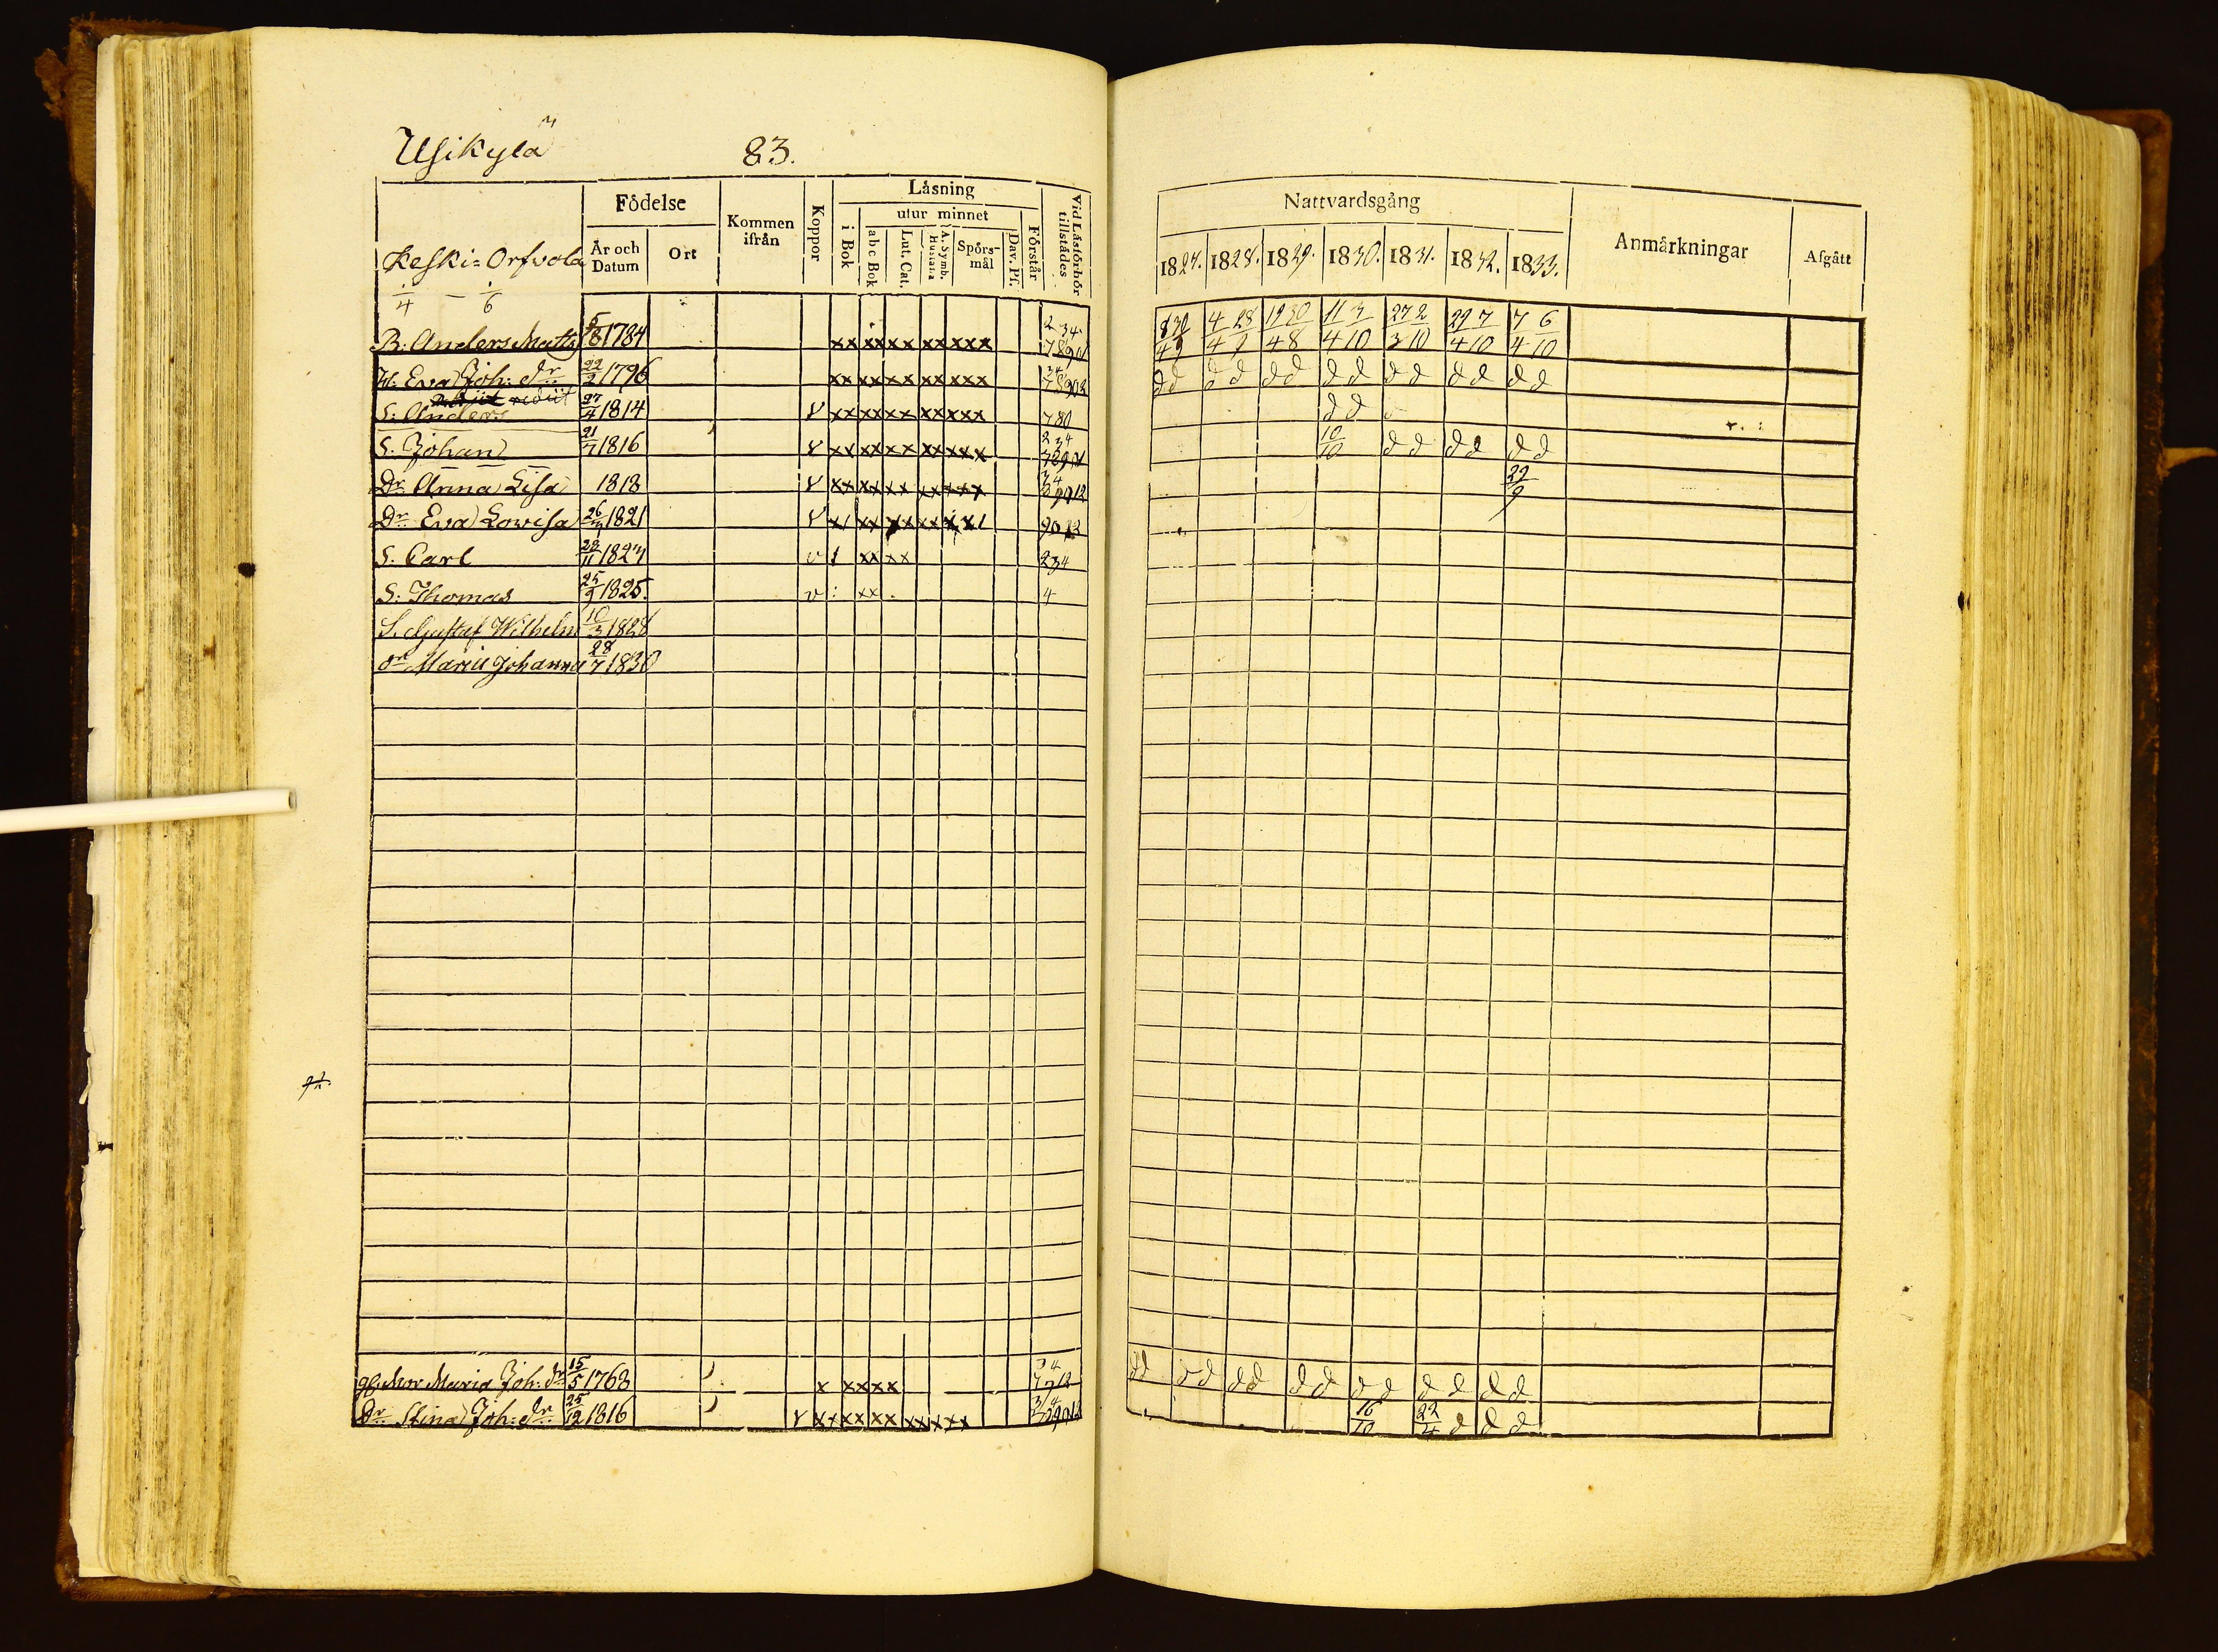 Usikylä 83.
Födelse Kommen ifrån Koppor Läsning Vid Läsförhör tillstädes
utur minnet
Keski-Orfvola År och Datum Ort i Bok abc Bok Lut. Cat. A. Symb. Hustafla Spörsmål Dav. Ps. Förstår
1/4 – 1/6
B. Anders Matts 5/8 1784 xx xx xx xx xxx 2 3 4 7 8 9 0 1
H: Eva Joh: dr 22/2 1796 xx xx xx xx xxx 3 4 7 8 9 0 2
rediit
S. Anders 27/4 1814 v xx xx xx xx xxx 7 8 0
S. Johan 21/7 1816 v xx xx xx xx xxx 2 3 4 7 8 9 0 1
Dr Anna Lisa 1818 v xx xx xx xx xxx 3 4 8 9 0 1 2
Dr Eva Lovisa 26/3 1821 v x/ xx xx xx xx/ 9 0 1 2
S. Carl 28/11 1823 v / xx xx 2 3 4
S: Thomas 25/9 1825. v : xx . 4
S. Gustaf Wilhelm 10/3 1828
dr Maria Johanna 28/7 1830
gl. Mor Maria Joh: dr 15/5 1768 x xx xx 3 4 7 2 1 2
Dr Stina Joh: dr 25/12 1816 v xx xx xx xx xxx 3 4 8 9 0 1 2
Nattvardsgång Anmärkningar Afgått
1827. 1828. 1829. 1830. 1831. 1832. 1833.
8 30 / 4 9 4 28 / 4 9 19 30 / 4 8 11 3 / 4 10 27 2 / 3 10 29 7 / 4 10 7 6 / 4 10
d d d d d d d d d d d d d d
d d
10/10 d d d d d d
29/9
d d d d d d d d d d d d d d
16/10 22/4 d d d